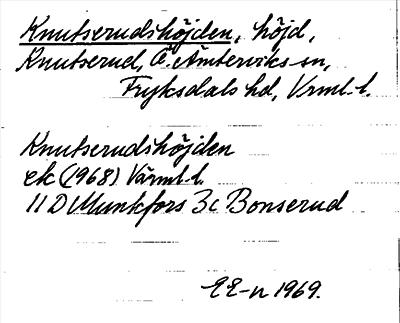 Knutserudshöjden, höjd,
Knutserud, Ö. Ämterviks sn,
Fryksdals hd, Vrml. l.
Knutserudshöjden
ek (1968) Värml. l.
11 D Munkfors 3c Bonserud
EE-n 1969.